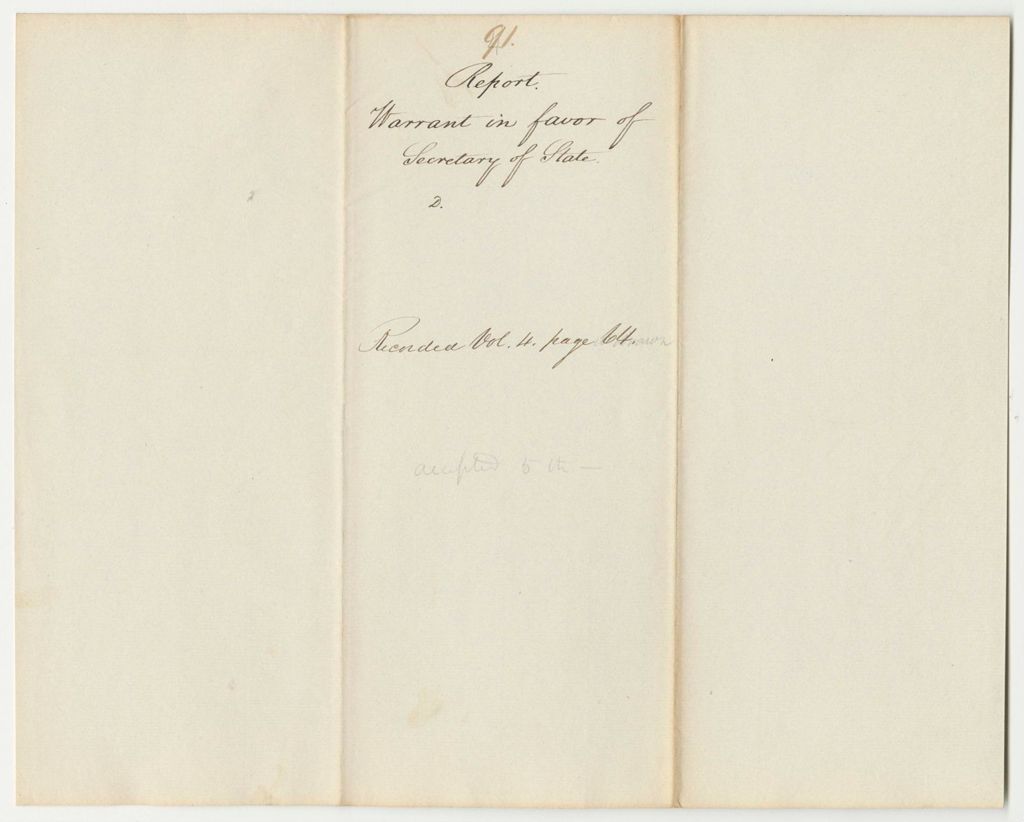 91.
Report.
Warrant in favor of
Secretary of State.
D.
Recorded Vol. 4. page 64.
accepted 5th —